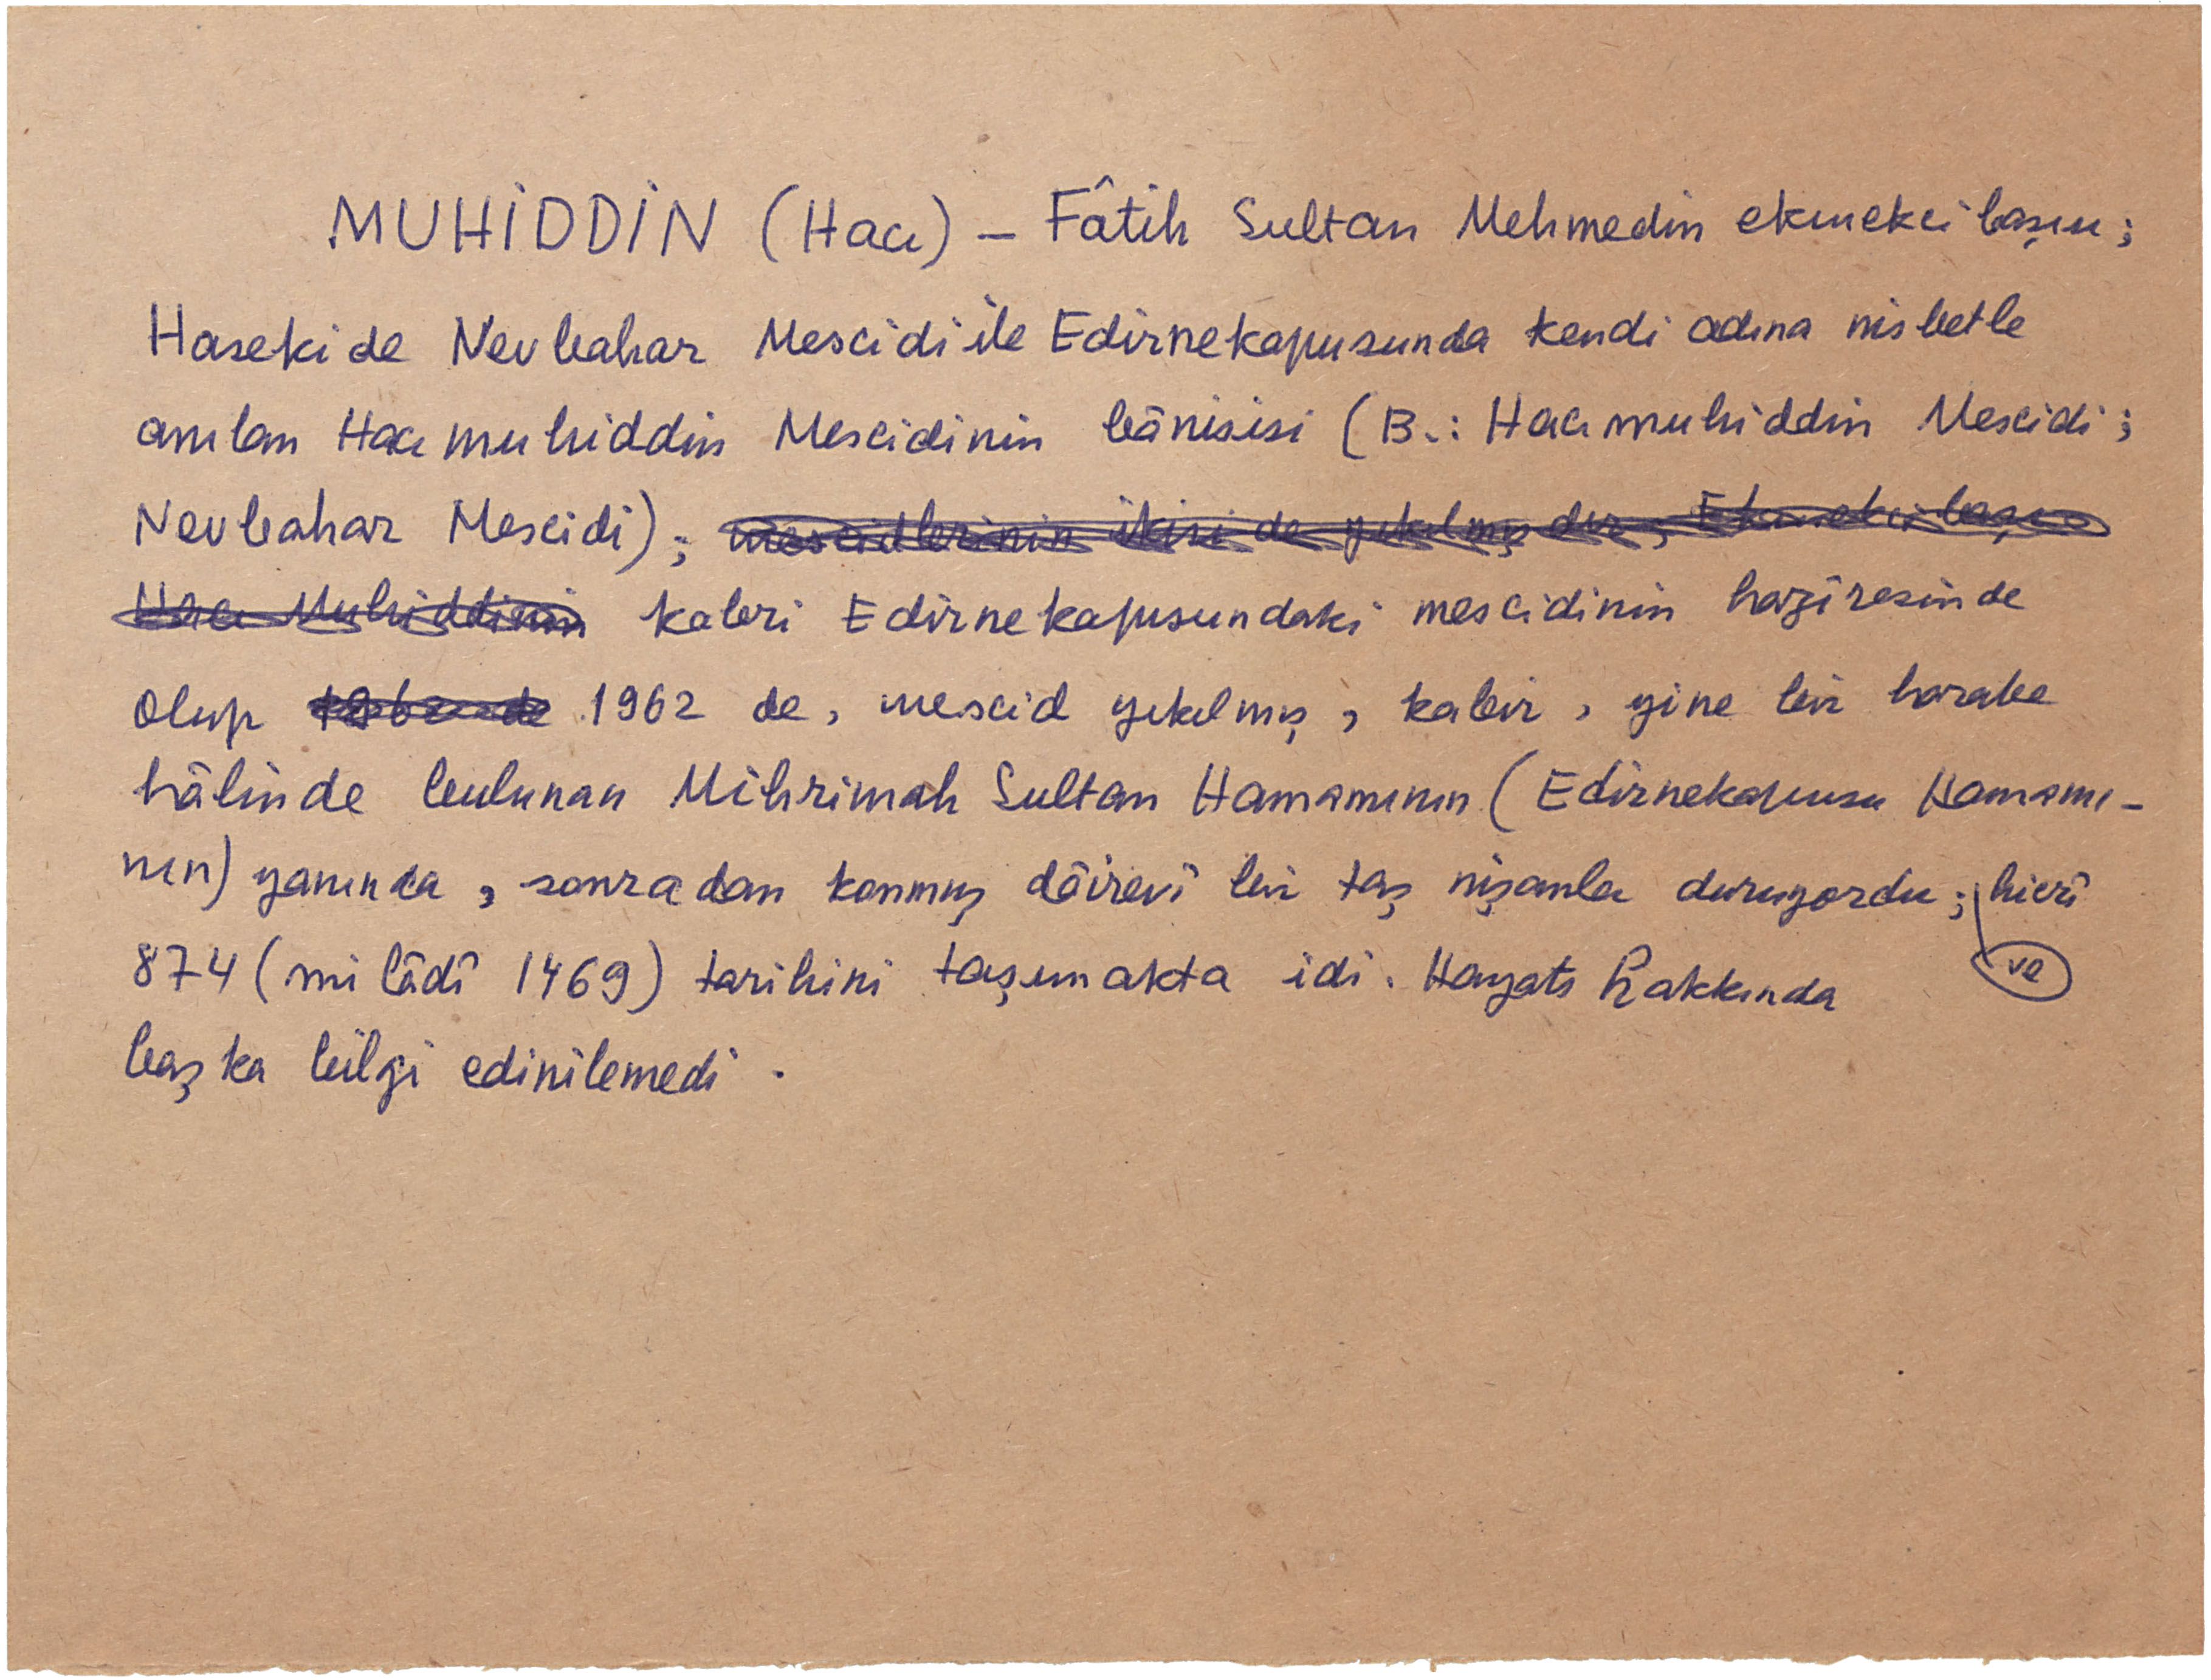 MUHİDDİN (Hacı) — Fâtih Sultan Mehmedin ekmekci başısı;
Hasekide Nevbahar Mescidi ile Edirnekapusunda kendi adına nisbetle
anılan Hacımuhiddin Mescidinin bânisisi (B.: Hacımuhiddin Mescidi;
Nevbahar Mescidi); mescidlerinin ikisi de yıkılmış dır, Ekmekcibaşı
Hacı Muhiddinin kabri Edirnekapusundaki mescidinin hazîresinde
olup 1962 de 1962 de, mescid yıkılmış, kabir, yine bir harabe
hâlinde bulunan Mihrimah Sultan Hamamının (Edirnekapusu Hamamı-
nın) yanında, sonradan konmuş dâirevî bir taş nişanla duruyordu; ve hicrî
874 (milâdî 1469) tarihini taşımakta idi. Hayatı hakkında
başka bilgi edinilemedi.